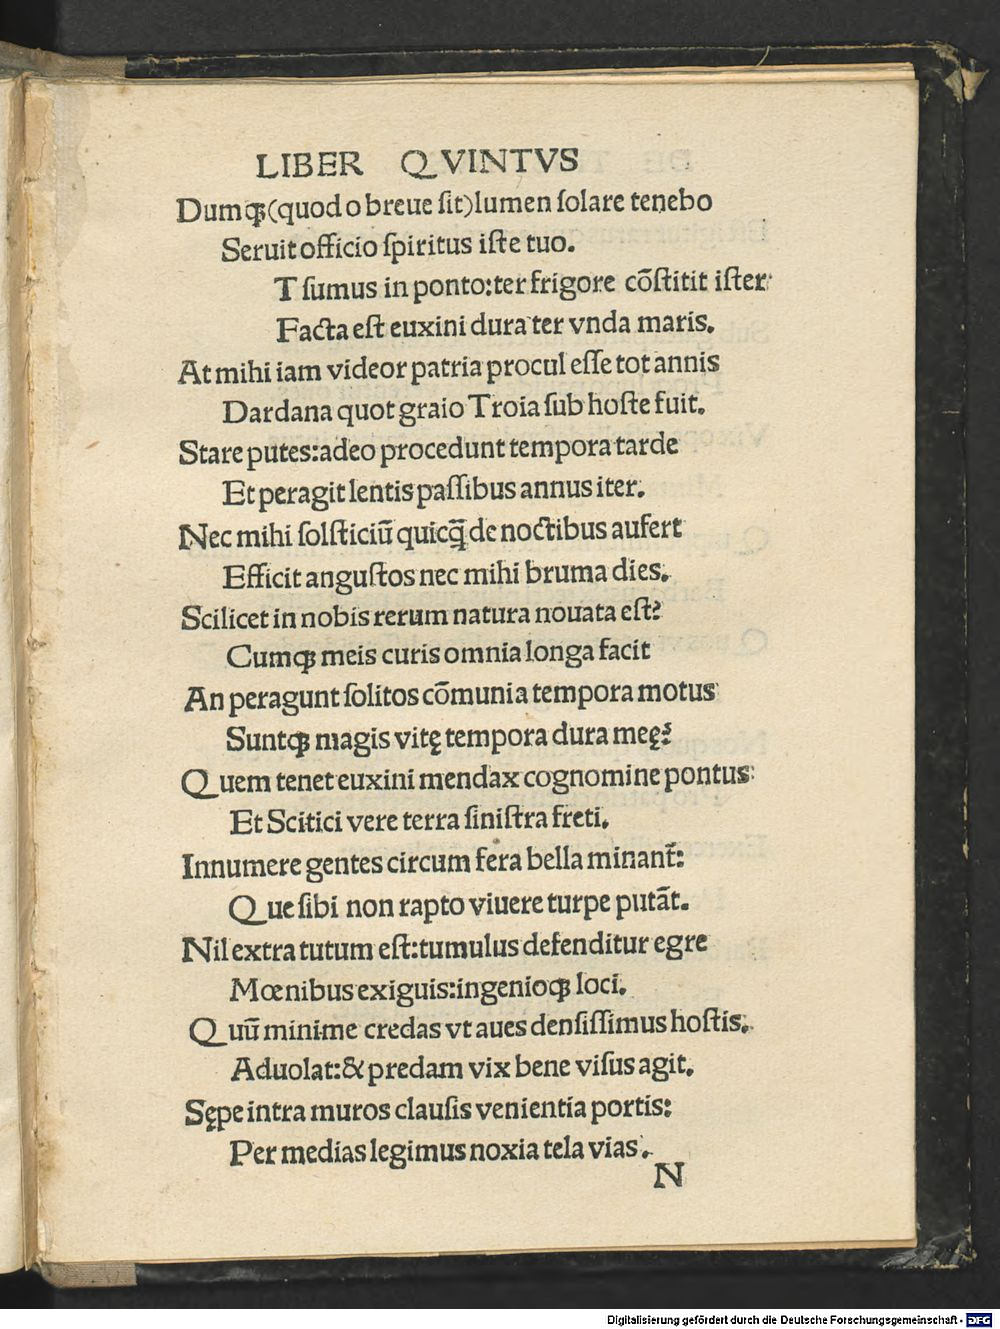 LIBER QVINTVS
Dumqꝫ(quod o breue ſit)lumen ſolare tenebo
Seruit officio ſpiritus iſte tuo.
T ſumus in ponto:ter frigore cōſtitit iſter:
Facta eſt euxini dura ter vnda maris.
At mihi iam videor patria procul eſſe tot annis
Dardana quot graio Troia ſub hoſte fuit.
Stare putes:adeo procedunt tempora tarde
Et peragit lentis paſſibus annus iter.
Nec mihi ſolſticiū quicq̄ de noctibus aufert
Efficit anguſtos nec mihi bruma dies.
Scilicet in nobis rerum natura nouata eſt?
Cumqꝫ meis curis omnia longa facit
An peragunt ſolitos cōmunia tempora motus
Suntqꝫ magis vitę tempora dura meę?
Quem tenet euxini mendax cognomine pontus:
Et Scitici vere terra ſiniſtra freti.
Innumere gentes circum fera bella minant̃:
Que ſibi non rapto viuere turpe putāt.
Nil extra tutum eſt:tumulus defenditur egre
Mœnibus exiguis:ingenioqꝫ loci.
Quū minime credas vt aues denſiſſimus hoſtis.
Aduolat:& predam vix bene viſus agit.
Sępe intra muros clauſis venientia portis:
Per medias legimus noxia tela vias.
N
Digitalisierung gefördert durch die Deutsche Forschungsgemeinschaft - DFG